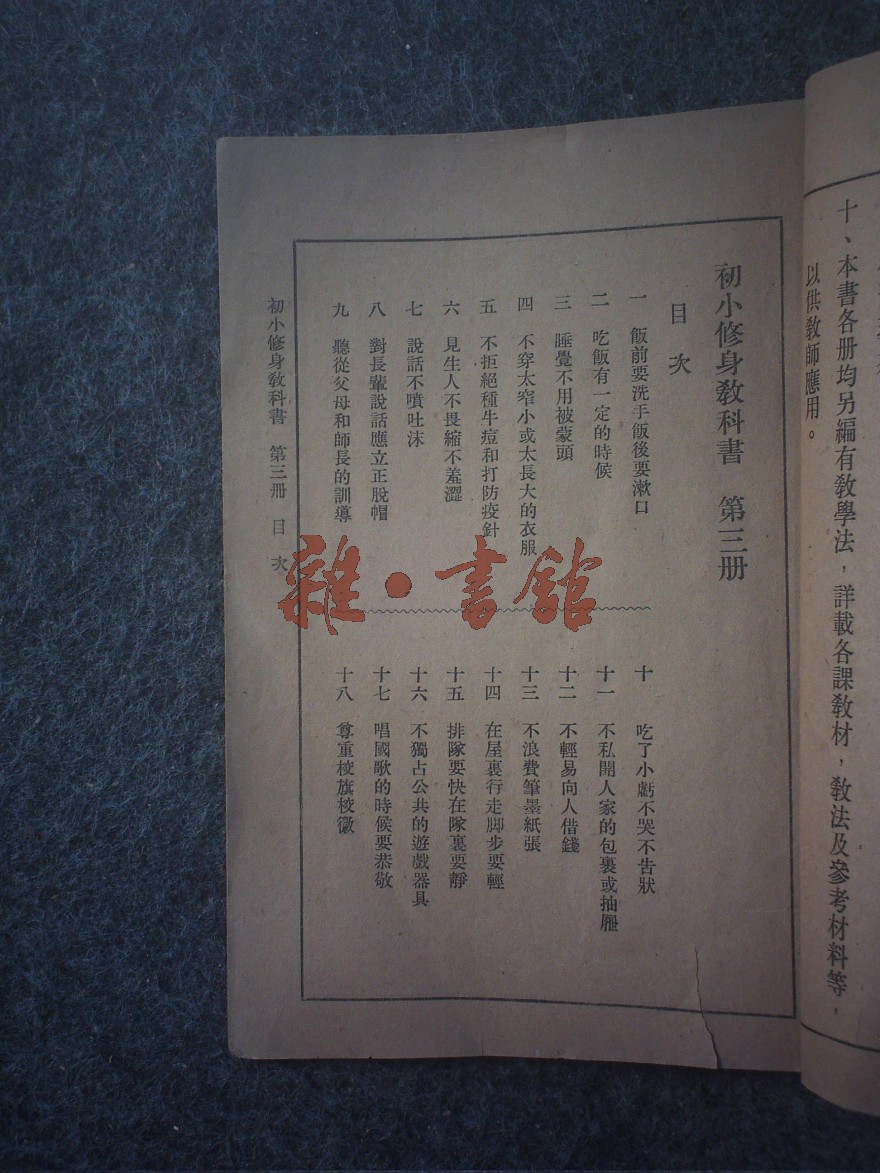 十、本書各册均另編有敎學法，詳載各課敎材，敎法及參考材料等，
以供敎師應用。
初小修身敎科書　第三册
目次
一　飯前要洗手飯後要漱口
二　吃飯有一定的時候
三　睡覺不用被蒙頭
四　不穿太窄小或太長大的衣服
五　不拒絕種牛痘和打防疫針
六　見生人不畏縮不羞澀
七　說話不噴吐沫
八　對長輩說話應立正脫帽
九　聽從父母和師長的訓導
十　吃了小虧不哭不告狀
十一　不私開人家的包裹或抽屜
十二　不輕易向人借錢
十三　不浪費筆墨紙張
十四　在屋裏行走脚步要輕
十五　排隊要快在隊裏要靜
十六　不獨占公共的遊戲器具
十七　唱國歌的時候要恭敬
十八　尊重校旗校徽
初小修身敎科書　第三册　目次
雜·書館